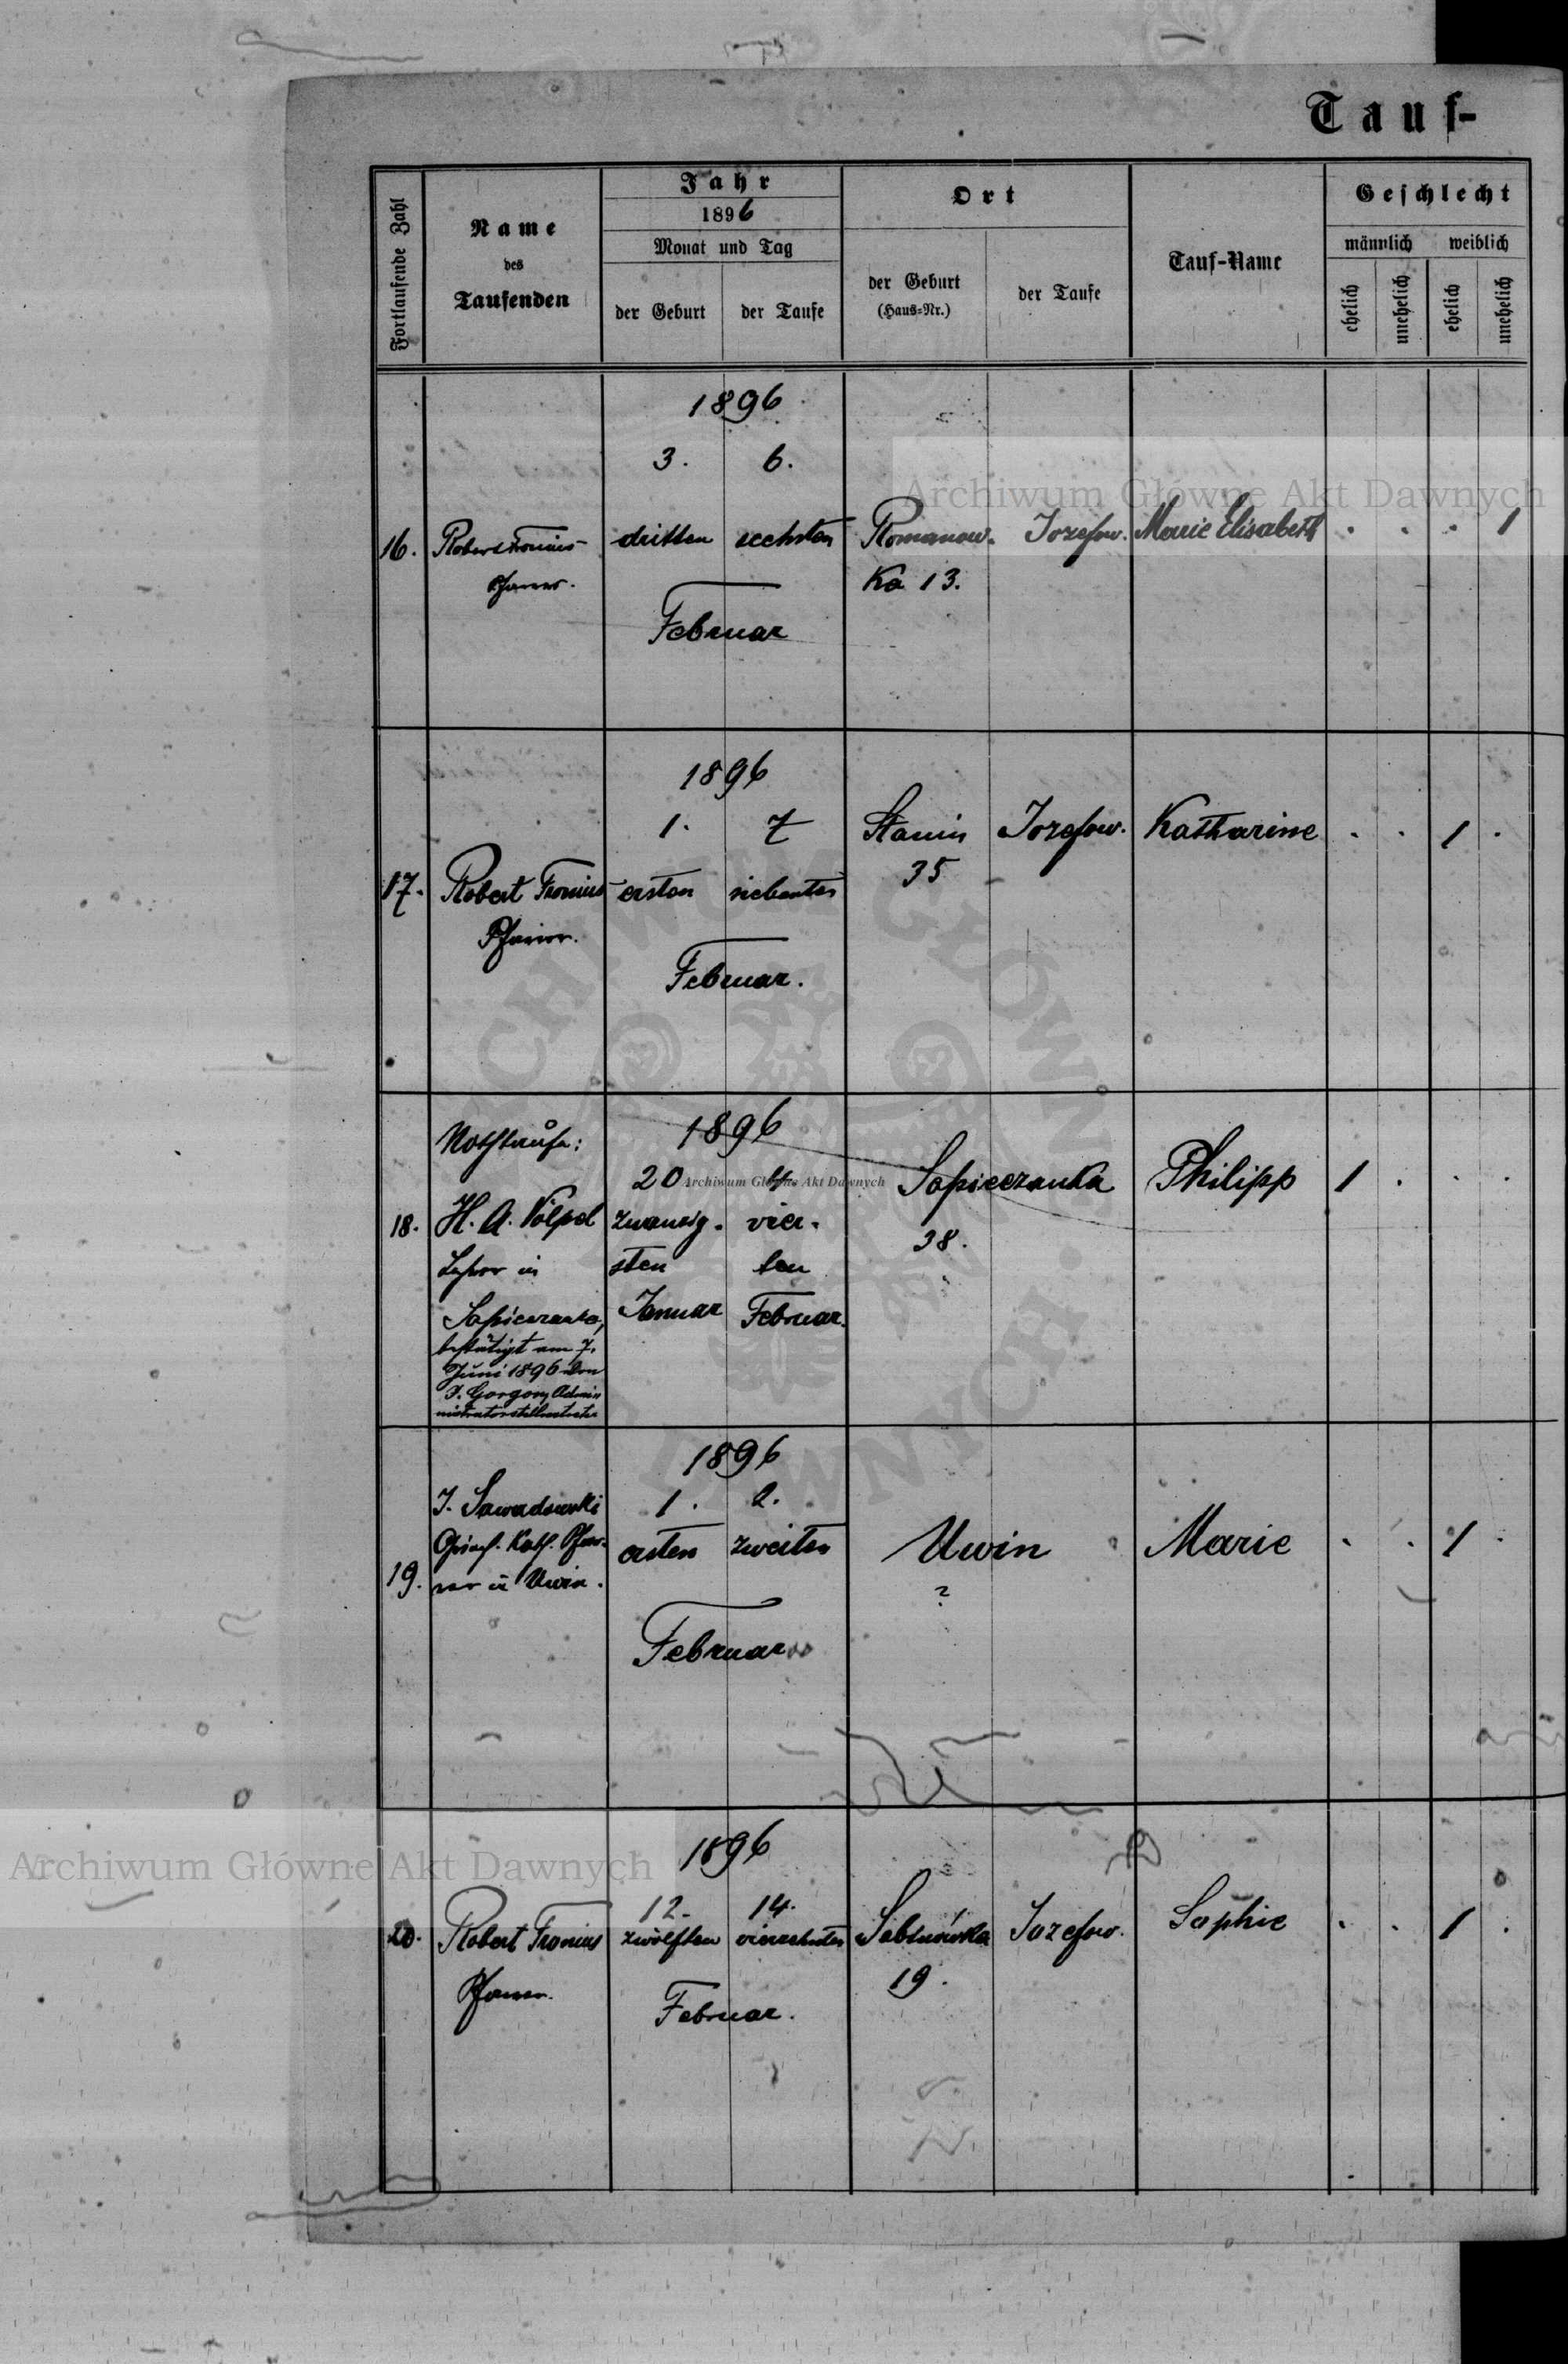 Tauf-
Fortlaufende Zahl
Name
des
Taufenden
Jahr
1896
Monat und Tag
der Geburt
der Taufe
Ort
der Geburt
(Haus-Nr.)
der Taufe
Tauf-Name
Geschlecht
männlich
weiblich
ehelich
unehelich
ehelich
unehelich
1896
3. 6.
16. Robert Fronius dritten sechsten Romanow- Jozefow. Marie Elisabeth . . . 1
Pfarrer. Ka 13.
Februar
1896
1. 7 Stanin Jozefow. Katharine . . 1 .
35
17. Robert Fronius ersten siebenten
Pfarrer.
Februar.
1896
Nothtaufe:
20 4. Sapiezanka Philipp 1 . . .
18. H. A. Völpel zwanzig- vier- 38.
Lehrer in sten ten
Sapiezanka, Januar Februar.
bestätigt am 7.
Juni 1896 von
J. Gorgon, Admi-
nistratorstellvertreter
1896
J. Sawadowski 1. 2.
Griech. Kath. Pfar- ersten zweiten Uwin Marie . . 1 .
19. rer in Uwin. ?
Februar
1896
12. 14.
20. Robert Fronius zwölften vierzehnten Sebnówka Jozefow. Sophie . . 1 .
Pfarrer. 19.
Februar.
Archiwum Główne Akt Dawnych
Archiwum Główne Akt Dawnych
Archiwum Główne Akt Dawnych
ARCHIWUM GŁÓWNE AKT DAWNYCH